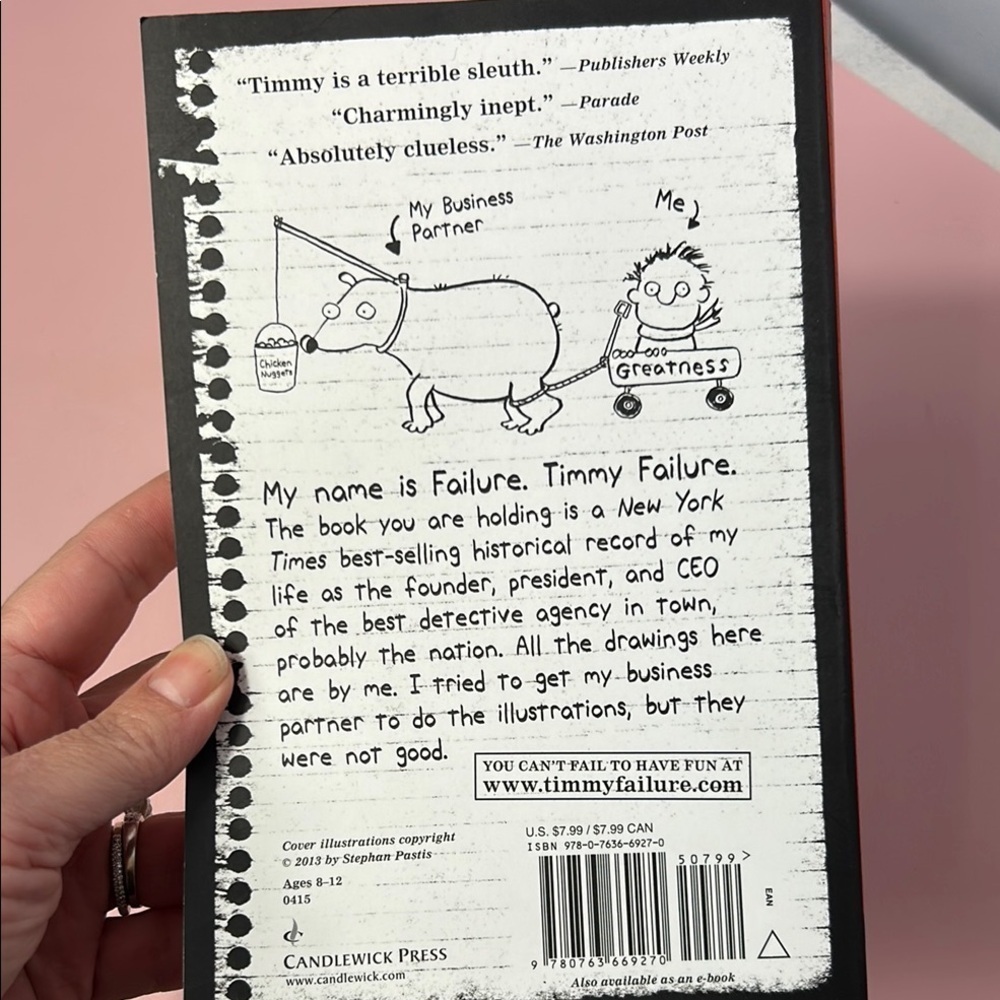 “Timmy is a terrible sleuth.” —Publishers Weekly
“Charmingly inept.” —Parade
“Absolutely clueless.” —The Washington Post
My Business
Partner
Me
Chicken
Nuggets
Greatness
My name is Failure. Timmy Failure.
The book you are holding is a New York
Times best-selling historical record of my
life as the founder, president, and CEO
of the best detective agency in town,
probably the nation. All the drawings here
are by me. I tried to get my business
partner to do the illustrations, but they
were not good.
YOU CAN'T FAIL TO HAVE FUN AT
www.timmyfailure.com
Cover illustrations copyright
© 2013 by Stephan Pastis
Ages 8–12
0415
CANDLEWICK PRESS
www.candlewick.com
U.S. $7.99 / $7.99 CAN
ISBN 978-0-7636-6927-0
50799>
EAN
9 780763 669270
Also available as an e-book